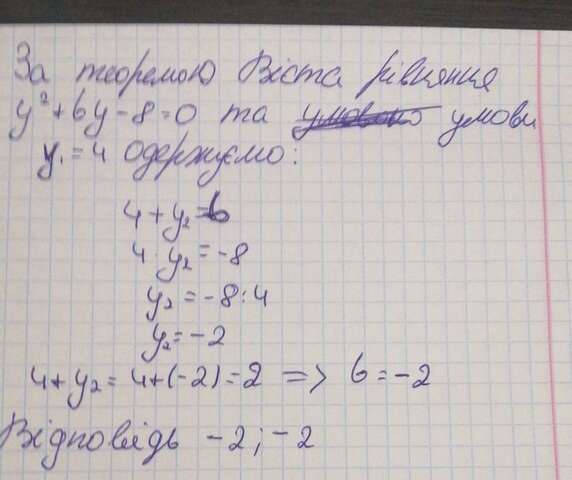 За теоремою Вієта рівняння
y² + by - 8 = 0 та умови
y₁ = 4 одержуємо:
4 + y₂ = b
4 · y₂ = -8
y₂ = -8 : 4
y₂ = -2
4 + y₂ = 4 + (-2) = 2 => b = -2
Відповідь -2 ; -2